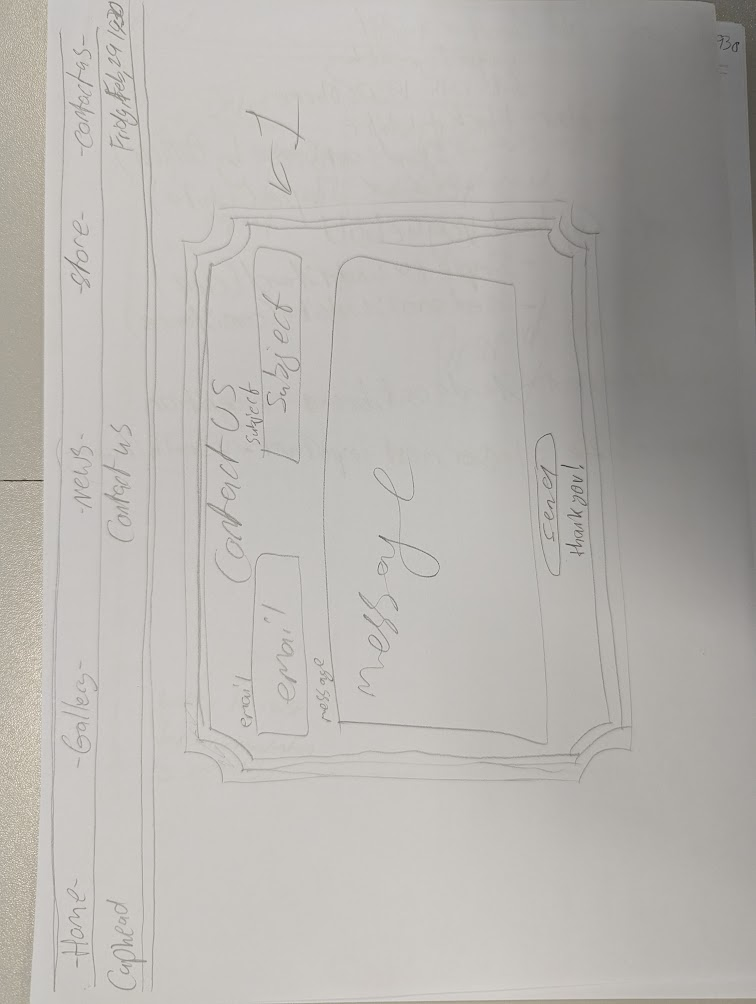 -Home- -Gallery- -News- -store- -contact us-
Caphead Contact us Friday, Feb, 29 1930
Contact US
email subject
email Subject
message
message
send
thank you!